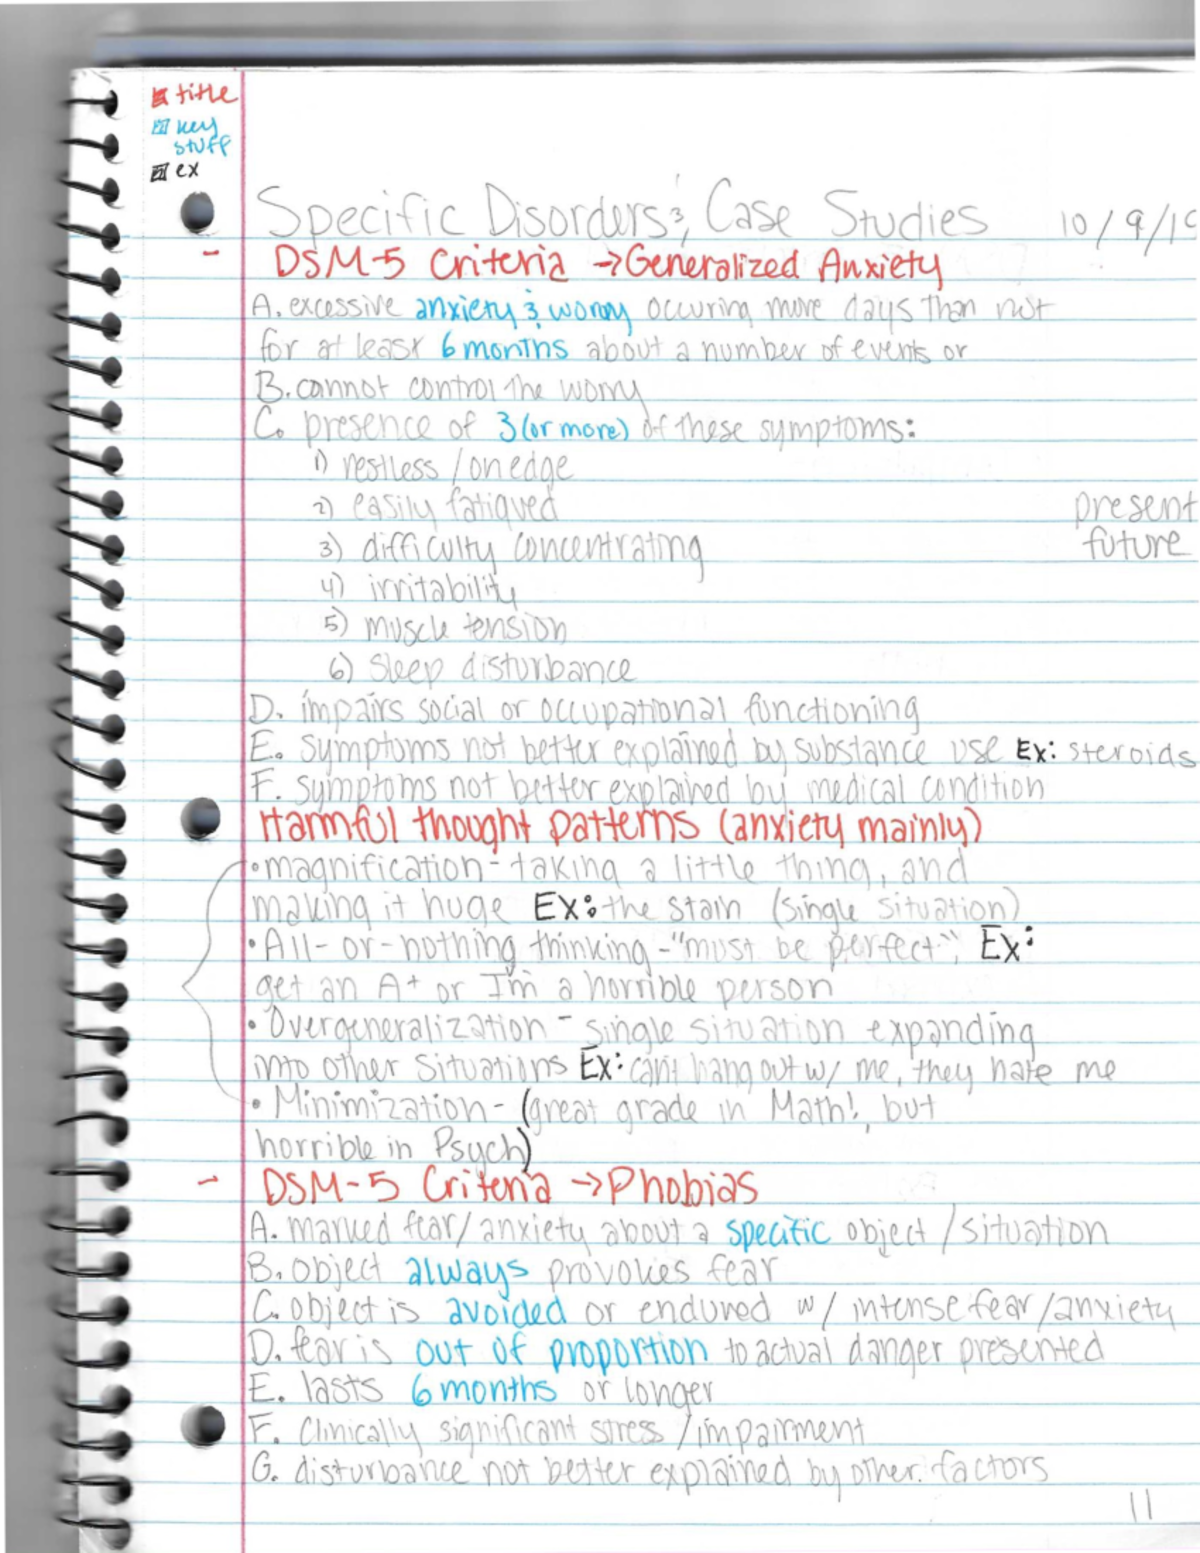 title
key
stuff
ex
Specific Disorders & Case Studies 10/9/19
- DSM-5 Criteria → Generalized Anxiety
A. excessive anxiety & worry occuring more days than not
for at least 6 months about a number of events or
B. cannot control the worry
C. presence of 3 (or more) of these symptoms:
1) restless / on edge
2) easily fatigued
present
3) difficulty concentrating
future
4) irritability
5) muscle tension
6) sleep disturbance
D. impairs social or occupational functioning
E. symptoms not better explained by substance use Ex: steroids
F. symptoms not better explained by medical condition
Harmful thought patterns (anxiety mainly)
• magnification - taking a little thing, and
making it huge Ex: the stain (single situation)
• All-or-nothing thinking - "must be perfect", Ex:
get an A+ or I'm a horrible person
• Overgeneralization - single situation expanding
into other situations Ex: can't hang out w/ me, they hate me
• Minimization - (great grade in Math!, but
horrible in Psych)
- DSM-5 Criteria → Phobias
A. marked fear/anxiety about a specific object / situation
B. object always provokes fear
C. object is avoided or endured w/ intense fear/anxiety
D. fear is out of proportion to actual danger presented
E. lasts 6 months or longer
F. Clinically significant stress / impairment
G. disturbance not better explained by other factors
11